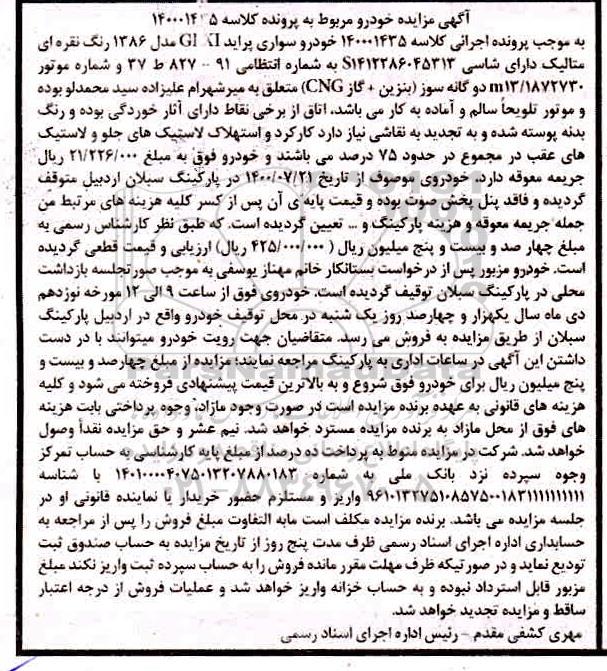 آگهی مزایده خودرو مربوط به پرونده کلاسه ۱۴۰۰۰۱۴۳۵
به موجب پرونده اجرائی کلاسه ۱۴۰۰۰۱۴۳۵ خودرو سواری پراید مدل ۱۳۸۶ رنگ نقره ای
متالیک دارای شاسی S۱۴۱۲۲۸۶۰۴۵۳۱۳ به شماره انتظامی ۹۱ - ۸۲۷ ط ۳۷ و شماره موتور
m۱۳/۱۸۷۲۷۳۰ دو گانه سوز (بنزین + گاز CNG) متعلق به میرشهرام علیزاده سید محمدلو بوده
و موتور تلویحاً سالم و آماده به کار می باشد، اتاق از برخی نقاط دارای آثار خوردگی بوده و رنگ
بدنه پوسته شده و به تجدید به نقاشی نیاز دارد کارکرد و استهلاک لاستیک های جلو و لاستیک
های عقب در مجموع در حدود ۷۵ درصد می باشند و خودرو فوق به مبلغ ۲۱/۲۲۶/۰۰۰ ریال
جریمه معوقه دارد، خودروی موصوف از تاریخ ۱۴۰۰/۰۷/۲۱ در پارکینگ سبلان اردبیل متوقف
گردیده و فاقد پنل پخش صوت بوده و قیمت پایه ی آن پس از کسر کلیه هزینه های مرتبط من
جمله جریمه معوقه و هزینه پارکینگ و ... تعیین گردیده است. که طبق نظر کارشناس رسمی به
مبلغ چهار صد و بیست و پنج میلیون ریال ( ۴۲۵/۰۰۰/۰۰۰ ریال) ارزیابی و قیمت قطعی گردیده
است. خودرو مزبور پس از درخواست بستانکار خانم مهناز یوسفی به موجب صورتجلسه بازداشت
محلی در پارکینگ سبلان توقیف گردیده است. خودروی فوق از ساعت ۹ الی ۱۲ مورخه نوزدهم
دی ماه سال یکهزار و چهارصد روز یک شنبه در محل توقیف خودرو واقع در اردبیل پارکینگ
سبلان از طریق مزایده به فروش می رسد. متقاضیان جهت رویت خودرو میتوانند با در دست
داشتن این آگهی در ساعات اداری به پارکینگ مراجعه نمایند؛ مزایده از مبلغ چهارصد و بیست و
پنج میلیون ریال برای خودرو فوق شروع و به بالاترین قیمت پیشنهادی فروخته می شود و کلیه
هزینه های قانونی به عهده برنده مزایده است در صورت وجود مازاد، وجوه پرداختی بابت هزینه
های فوق از محل مازاد به برنده مزایده مسترد خواهد شد. نیم عشر و حق مزایده نقداً وصول
خواهد شد. شرکت در مزایده منوط به پرداخت ده درصد از مبلغ پایه کارشناسی به حساب تمرکز
وجوه سپرده نزد بانک ملی به شماره با شناسه
واریز و مستلزم حضور خریدار یا نماینده قانونی او در
جلسه مزایده می باشد. برنده مزایده مکلف است مابه التفاوت مبلغ فروش را پس از مراجعه به
حسابداری اداره اجرای اسناد رسمی ظرف مدت پنج روز از تاریخ مزایده به حساب صندوق ثبت
تودیع نماید و در صورتیکه ظرف مهلت مقرر مانده فروش را به حساب سپرده ثبت واریز نکند مبلغ
مزبور قابل استرداد نبوده و به حساب خزانه واریز خواهد شد و عملیات فروش از درجه اعتبار
ساقط و مزایده تجدید خواهد شد.
مهری کشفی مقدم - رئیس اداره اجرای اسناد رسمی